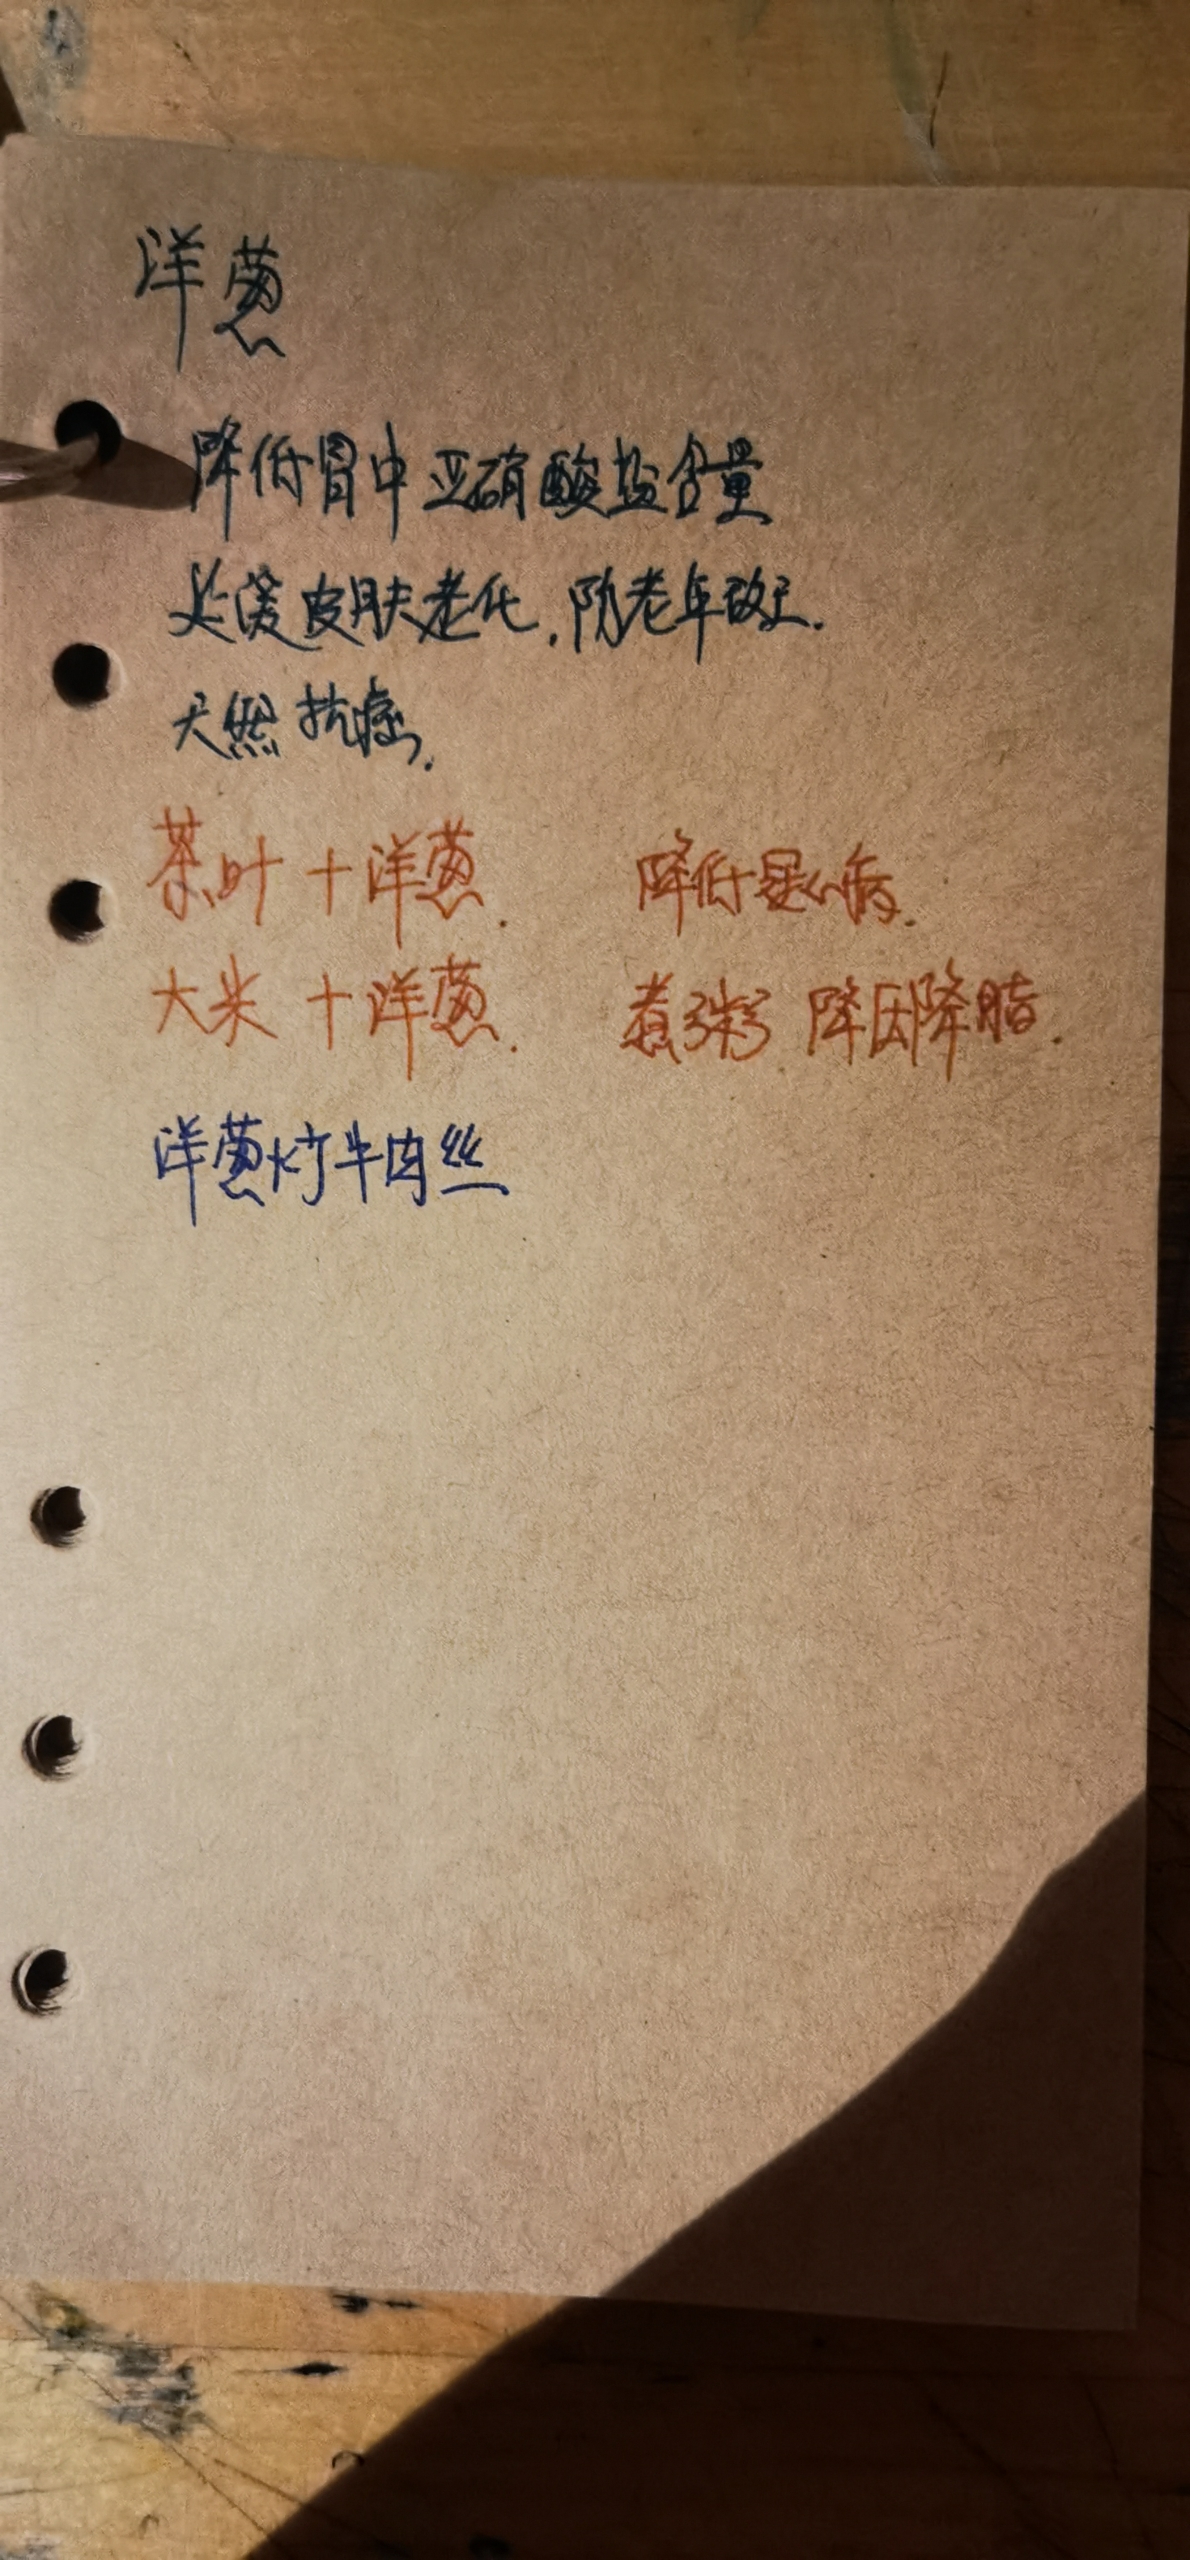 洋葱
降低胃中亚硝酸盐含量
皮肤老化,防老年斑.
天然抗癌.
茶叶+洋葱. 降低冠心病.
大米+洋葱. 煮粥 降压降脂.
洋葱炒牛肉丝